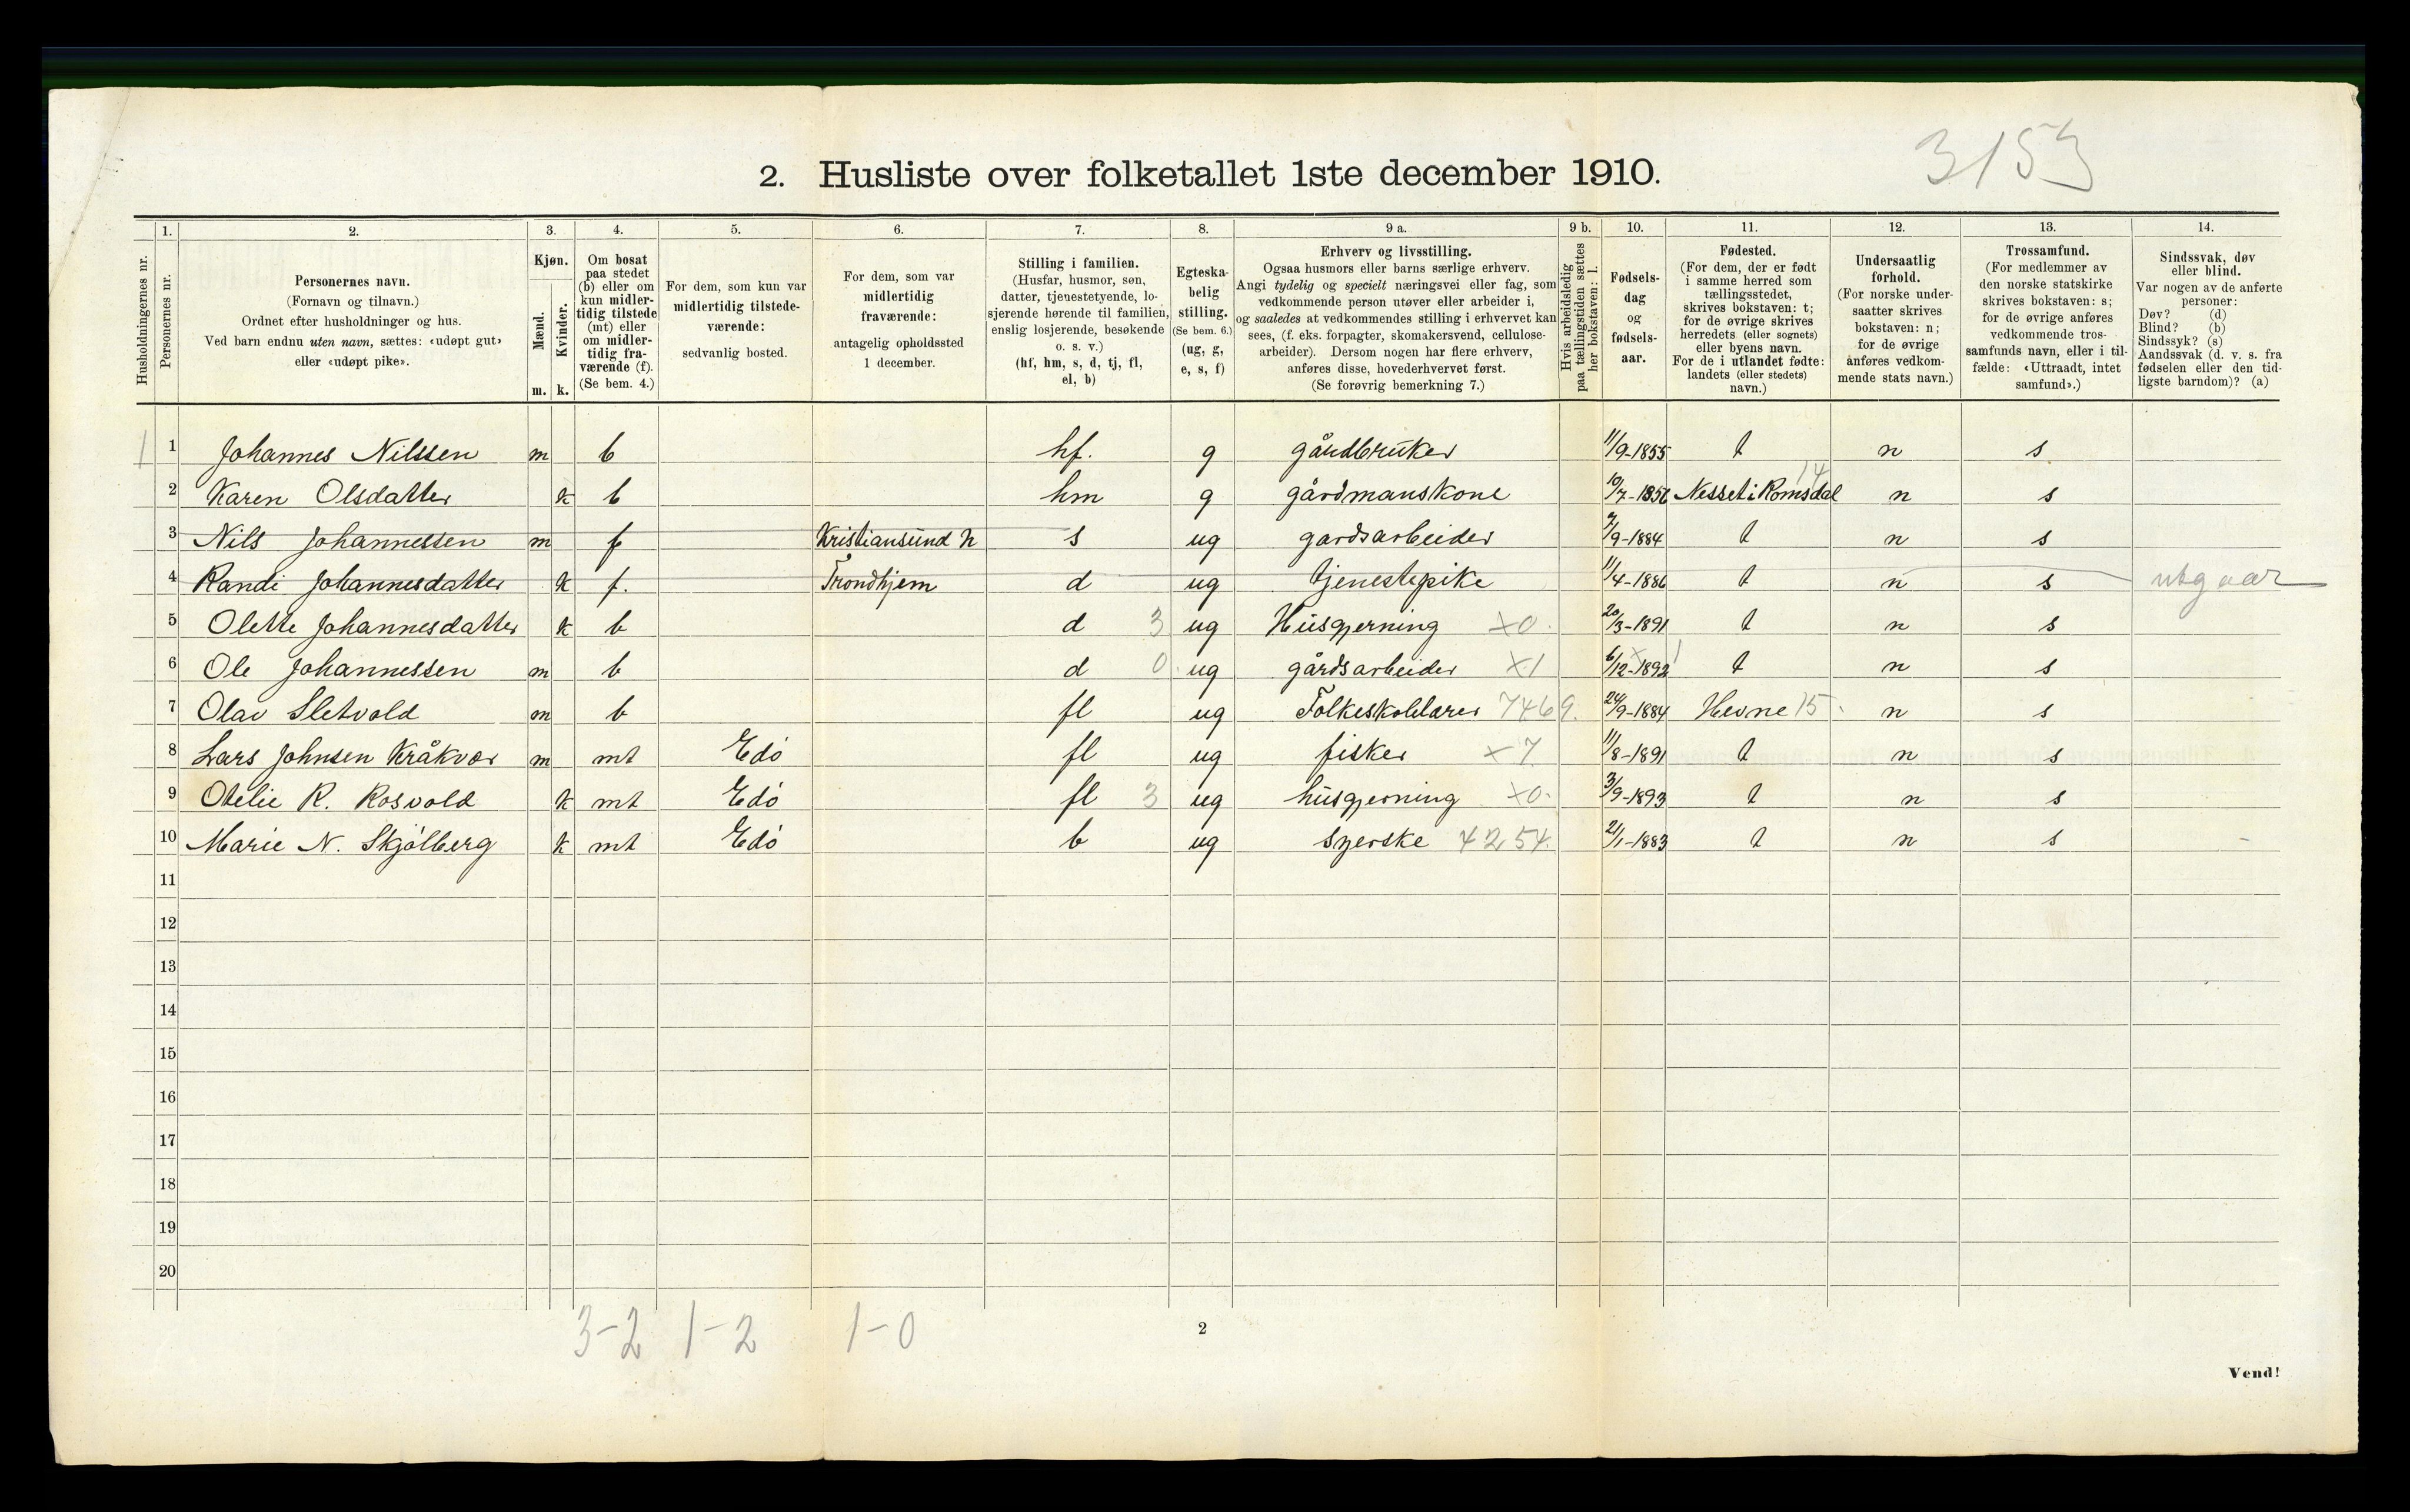 3153
2. Husliste over folketallet 1ste december 1910.
Husholdningernes nr.
1.
Personernes nr.
2.
Personernes navn.
(Fornavn og tilnavn.)
Ordnet efter husholdninger og hus.
Ved barn endnu uten navn, sættes: «udøpt gut»
eller «udøpt pike».
3.
Kjøn.
Mænd. Kvinder.
m. k.
4.
Om bosat
paa stedet
(b) eller om
kun midler-
tidig tilstede
(mt) eller
om midler-
tidig fra-
værende (f).
(Se bem. 4.)
5.
For dem, som kun var
midlertidig tilstede-
værende:
sedvanlig bosted.
6.
For dem, som var
midlertidig
fraværende:
antagelig opholdssted
1 december.
7.
Stilling i familien.
(Husfar, husmor, søn,
datter, tjenestetyende, lo-
sjerende hørende til familien,
enslig losjerende, besøkende
o. s. v.)
(hf, hm, s, d, tj, fl,
el, b)
8.
Egteska-
belig
stilling.
(Se bem. 6.)
(ug, g,
e, s, f)
9 a.
Erhverv og livsstilling.
Ogsaa husmors eller barns særlige erhverv.
Angi tydelig og specielt næringsvei eller fag, som
vedkommende person utøver eller arbeider i,
og saaledes at vedkommendes stilling i erhvervet kan
sees, (f. eks. forpagter, skomakersvend, cellulose-
arbeider). Dersom nogen har flere erhverv,
anføres disse, hovederhvervet først.
(Se forøvrig bemerkning 7.)
9 b.
Hvis arbeidsledig
paa tællingstiden sættes
her bokstaven: l.
10.
Fødsels-
dag
og
fødsels-
aar.
11.
Fødested.
(For dem, der er født
i samme herred som
tællingsstedet,
skrives bokstaven: t;
for de øvrige skrives
herredets (eller sognets)
eller byens navn.
For de i utlandet fødte:
landets (eller stedets)
navn.)
12.
Undersaatlig
forhold.
(For norske under-
saatter skrives
bokstaven: n;
for de øvrige
anføres vedkom-
mende stats navn.)
13.
Trossamfund.
(For medlemmer av
den norske statskirke
skrives bokstaven: s;
for de øvrige anføres
vedkommende tros-
samfunds navn, eller i til-
fælde: «Uttraadt, intet
samfund».)
14.
Sindssvak, døv
eller blind.
Var nogen av de anførte
personer:
Døv? (d)
Blind? (b)
Sindssyk? (s)
Aandssvak (d. v. s. fra
fødselen eller den tid-
ligste barndom)? (a)
1 1 Johannes Nilssen m b hf. g gårdbruker 11/9-1855 t n s
2 Karen Olsdatter k b hm g gårdmanskone 10/7-1856 Nesset i Romsdal 14 n s
3 Nils Johannessen m f Kristiansund N s ug gardsarbeider 7/9-1884 t n s
4 Randi Johannesdatter k f. Trondhjem d ug tjenestepike 11/4-1886 t n s utgaar
5 Olette Johannesdatter k b d 3 ug Husgjerning x0. 20/3-1891 t n s
6 Ole Johannessen m b d 0. ug gårdsarbeider x1 6/12-1892 t n s
7 Olav Sletvold m b fl ug Folkeskolelærer 7469. 24/9-1884 Hevne 15. n s
8 Lars Johnsen Kråkvær m mt Edö fl ug fisker x7 11/8-1891 t n s
9 Otelie R. Rosvold k mt Edö fl 3 ug husgjerning x0. 3/9-1893 t n s
10 Marie N. Skjölberg k mt Edö b ug syerske 4254. 2/1-1883 t n s -
11
12
13
14
15
16
17
18
19
20
3-2 1-2 1-0
2
Vend!